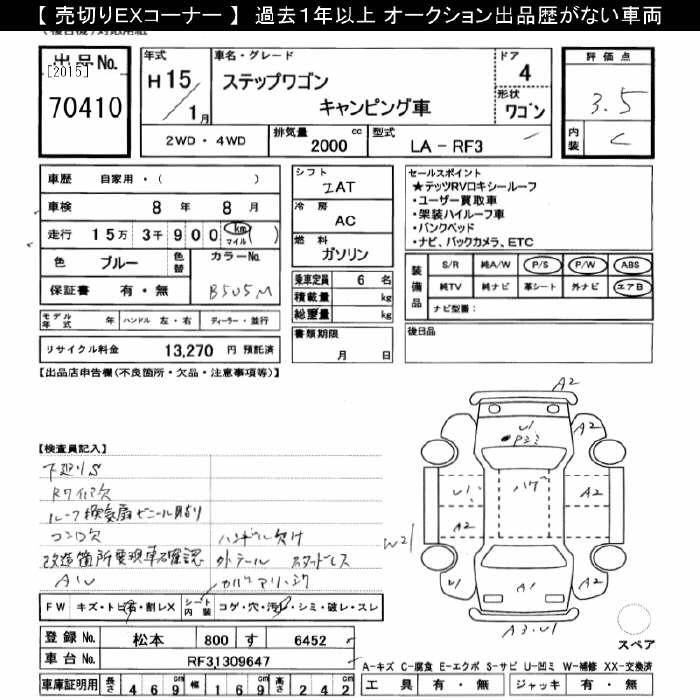 【 売切りEXコーナー 】 過去１年以上 オークション出品歴がない車両
出品No.
[2015]
70410
年式
H15/1月
車名・グレード
ステップワゴン
キャンピング車
ドア
4
形状
ワゴン
2WD・4WD
排気量
2000 cc
型式
LA－RF3
評価点
3.5
内装
C
車歴 自家用・( )
車検 8年 8月
走行 15万3千900 km マイル ( )
色 ブルー
色替
カラーNo.
B505M
保証書 有・無
モデル年式 年
ハンドル 左・右
ディーラー・並行
リサイクル料金 13,270 円 預託済
シフト
2AT
冷房
AC
燃料
ガソリン
乗車定員 6 名
積載量 kg
総重量 kg
書類期限
月 日
セールスポイント
★テッツRVロキシールーフ
・ユーザー買取車
・架装ハイルーフ車
・バンクベッド
・ナビ、バックカメラ、ETC
装備品
S/R 純A/W P/S P/W ABS
純TV 純ナビ 革シート 外ナビ エアB
ナビ型番：
後日品
【出品店申告欄(不良箇所・欠品・注意事項等)】
【検査員記入】
下廻りS
コンロ欠
ハンドル欠け
改造箇所要現車確認
外テール
スタッドレス
AW
A2
U1
A2
ハゲ
U1
A2
A2
W21
A2
U1
A1
A2
A3.U1
FW キズ・トビ石・割レX
シート内装 コゲ・穴・汚レ・シミ・破レ・スレ
登録No. 松本 800 す 6452
車台No. RF31309647
車庫証明用 長さ 469 cm 幅 169 cm 高さ 242 cm
スペア
A－キズ C－腐食 E－エクボ S－サビ U－凹ミ W－補修 XX－交換済
工具 有・無 ジャッキ 有・無